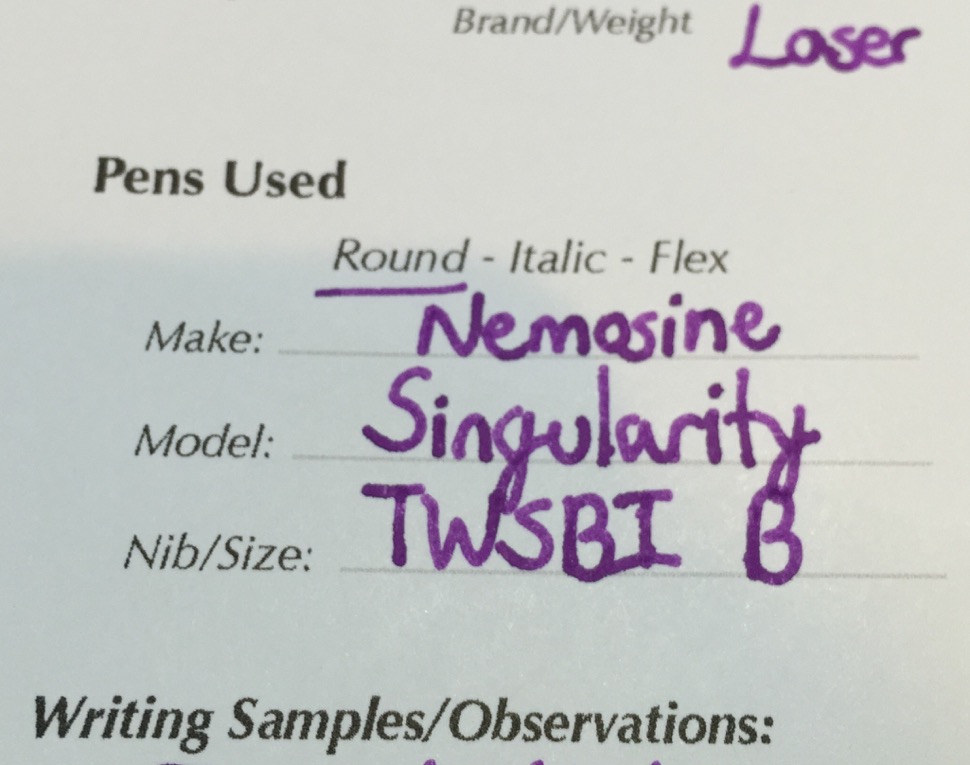 Brand/Weight Laser
Pens Used
Round - Italic - Flex
Make: Nemosine
Model: Singularity
Nib/Size: TWSBI B
Writing Samples/Observations: